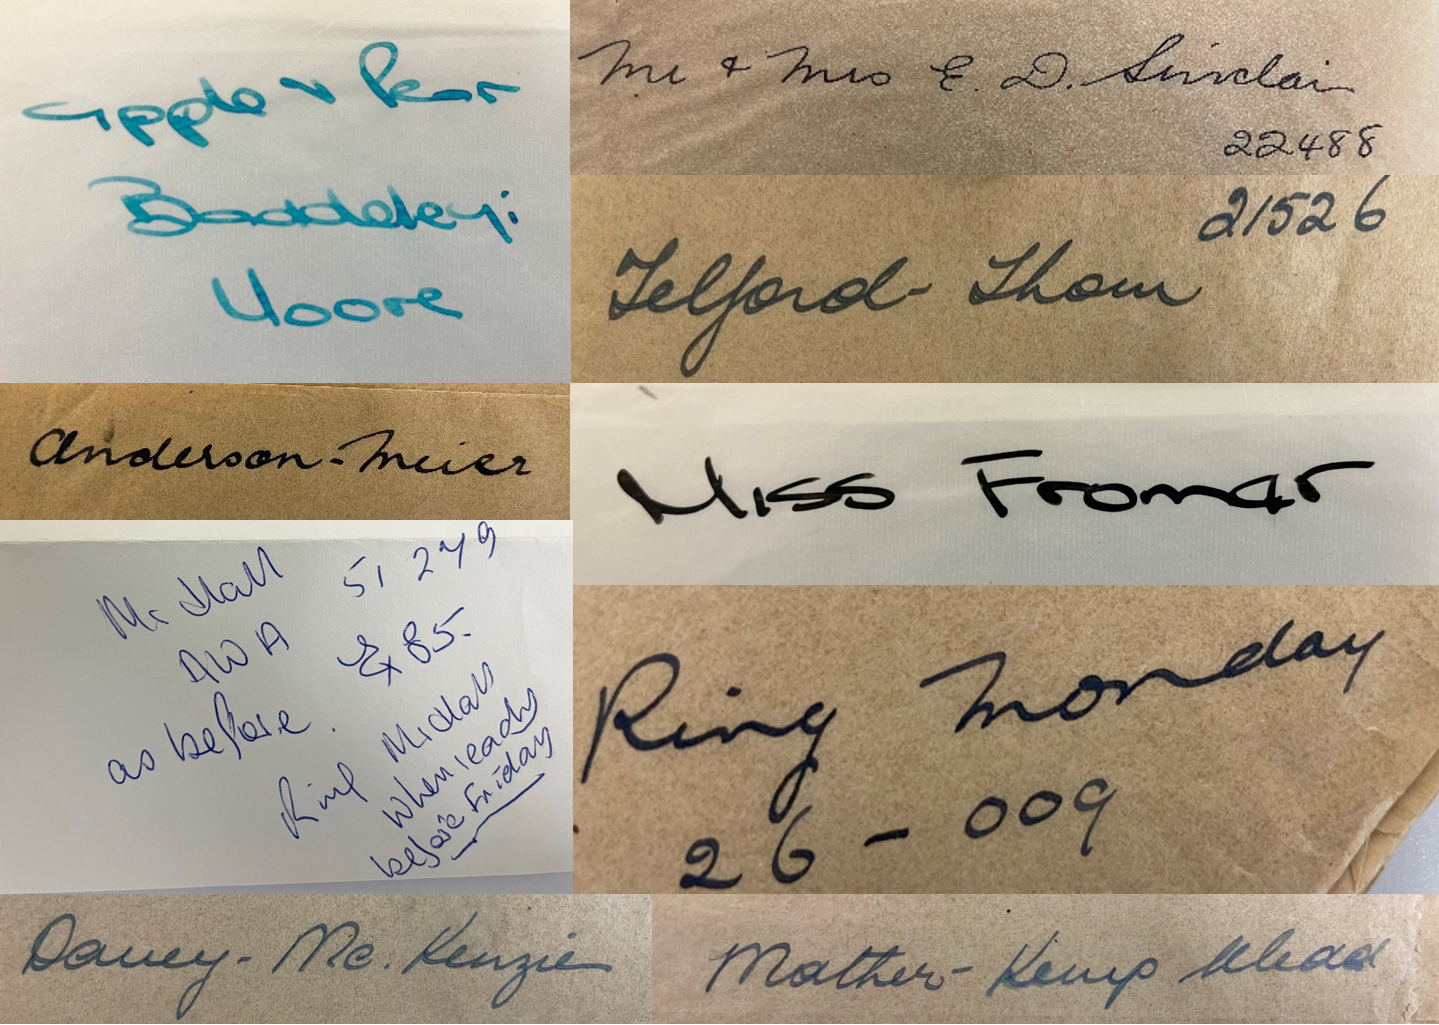 Apple & Pear
Baddeley:
Moore
Mr & Mrs E. D. Sinclair
22488
21526
Telford- Thom
Anderson-Meier
Miss Fromar
Mr Hall 51 279
AWA Ex 85-
as before.
Ring Mr Hall
when ready
before Friday
Ring Monday
26-009
Davey- Mc. Kenzie
Mather- Kemp Mead